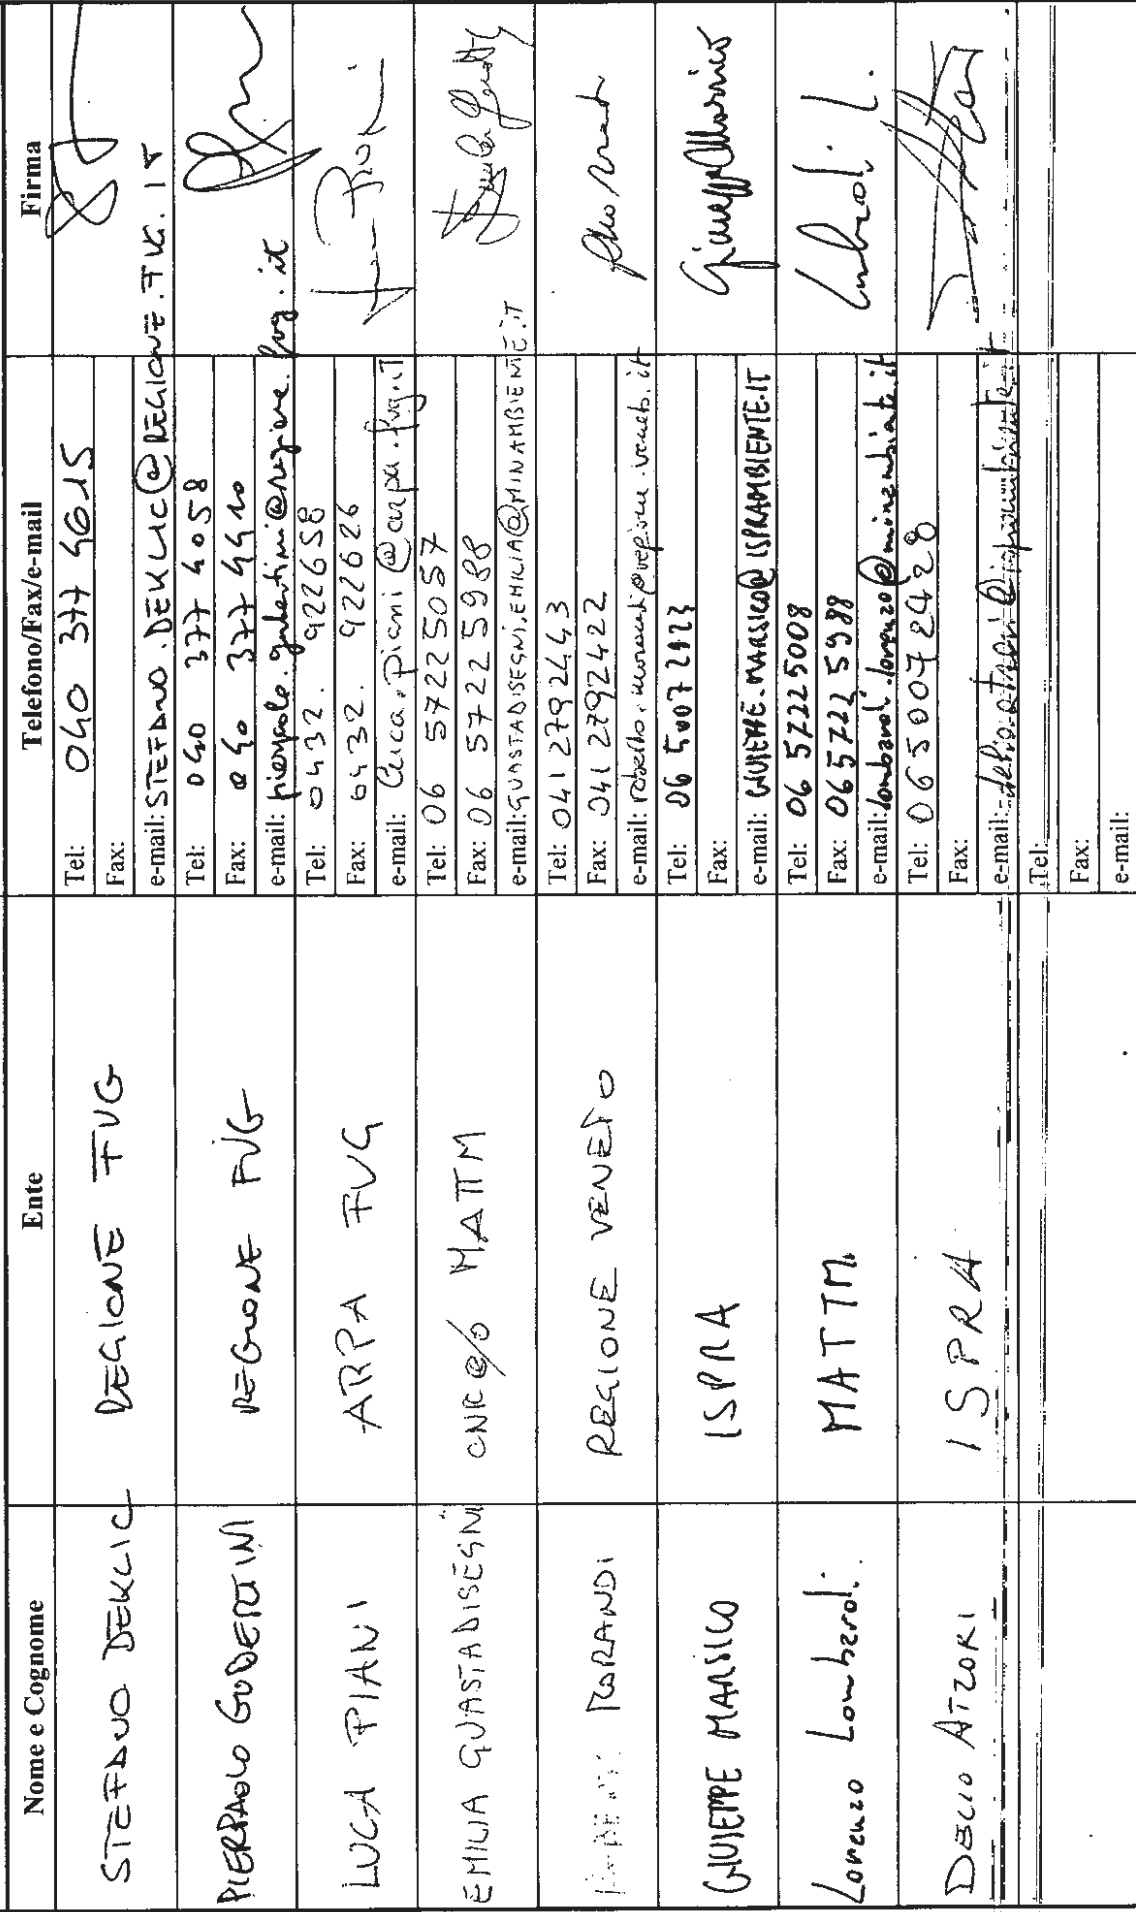 Nome e Cognome Ente Telefono/Fax/e-mail Firma
STEFANO DEKLIC REGIONE FVG Tel: 040 377 4615
Fax:
e-mail: STEFANO.DEKLIC@REGIONE.FVG.IT
PIERPAOLO GUBERTINI REGIONE FVG Tel: 040 377 4058
Fax: 040 377 4410
e-mail: pierpaolo.gubertini@regione.fvg.it
LUCA PIANI ARPA FVG Tel: 0432. 922658
Fax: 0432. 922626
e-mail: luca.piani@arpa.fvg.it
EMILIA GUASTADISEGNI CNR c/o MATTM Tel: 06 57225057
Fax: 06 57225988
e-mail: GUASTADISEGNI.EMILIA@MINAMBIENTE.IT
MORANDI REGIONE VENETO Tel: 041 2792443
Fax: 041 2792422
e-mail: roberto.morandi@regione.veneto.it
GIUSEPPE MARSICO ISPRA Tel: 06 5007 2123 Giuseppe Marsico
Fax:
e-mail: GIUSEPPE.MARSICO@ISPRAMBIENTE.IT
Lorenzo Lombardi MATTM. Tel: 06 57225008 Lombardi L.
Fax: 06 57225988
e-mail: lombardi.lorenzo@minambiente.it
DECIO ATZORI ISPRA Tel: 06 50072428
Fax:
e-mail:
Tel:
Fax:
e-mail: